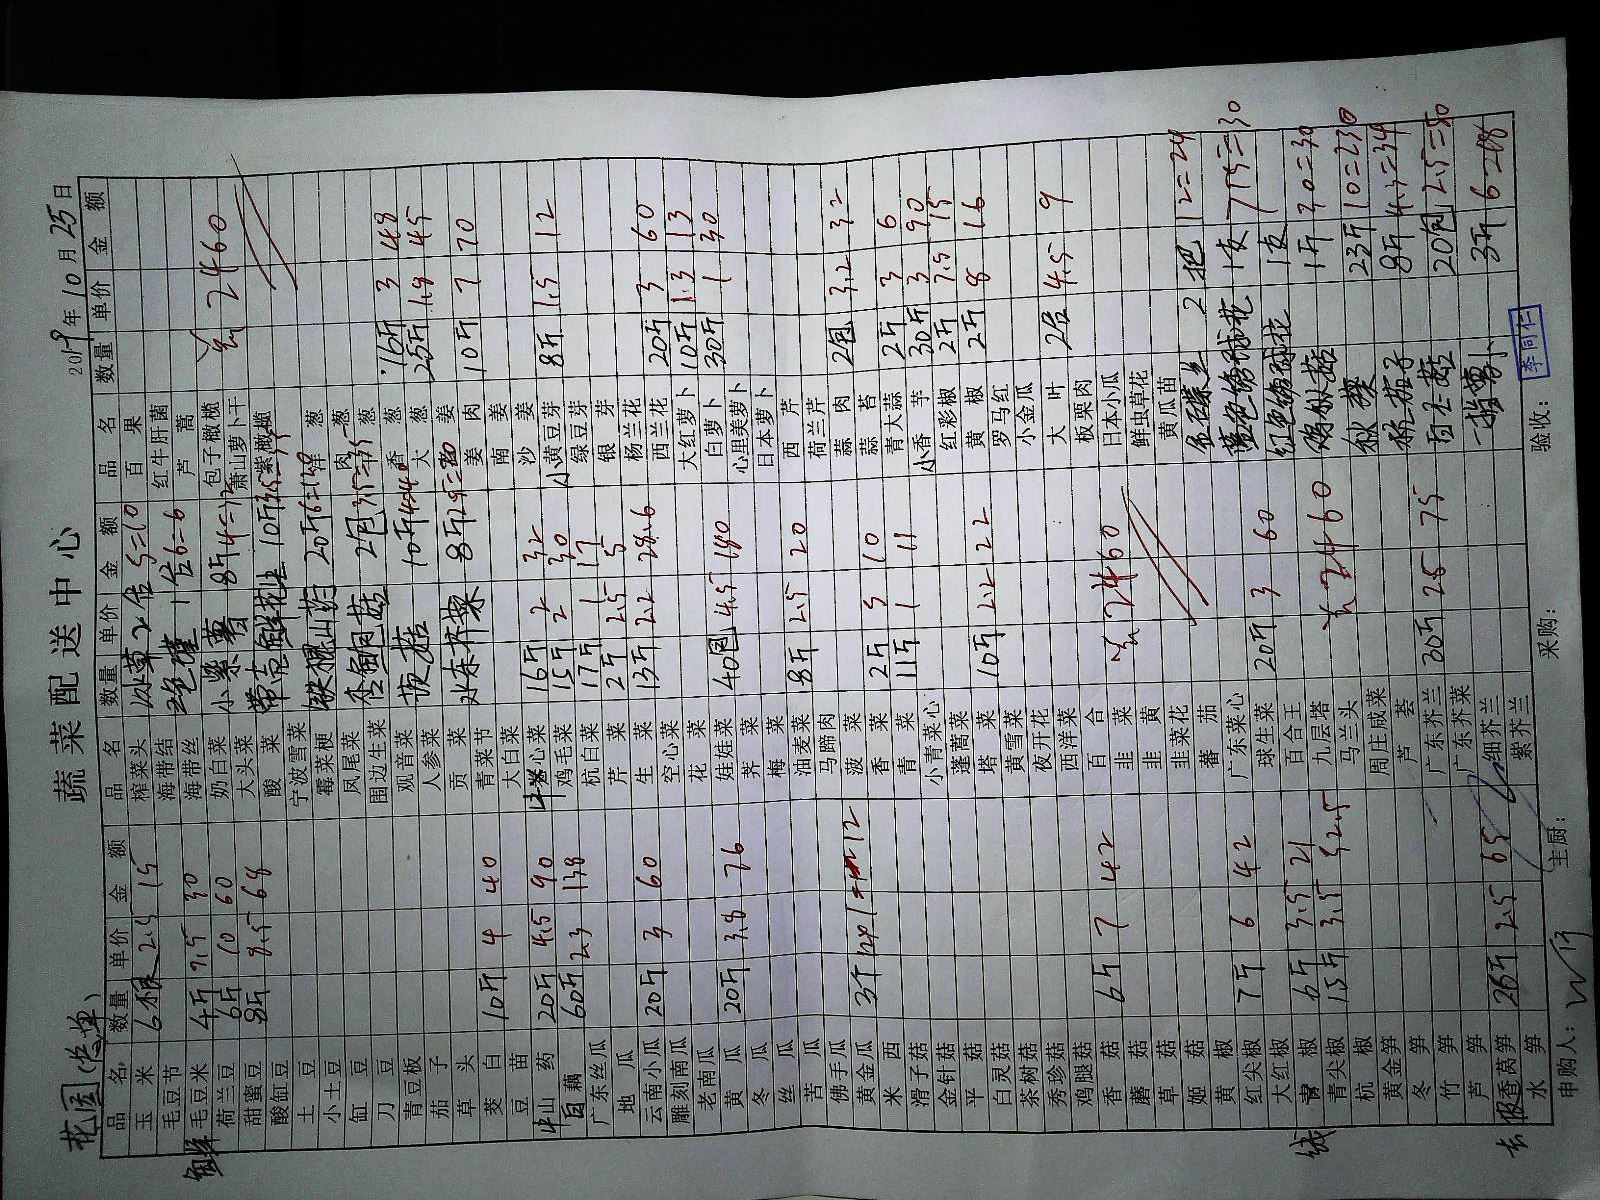 蔬菜配送中心
花园(总单)
2019年10月25日
品名 数量 单价 金额 品名 数量 单价 金额 品名 数量 单价 金额
玉米 6根 2.5 15 榨菜头 冰草 2台 5=10 百果
毛豆节 海带结 1台6=6 红牛肝菌
鲜毛豆米 4斤 7.5 30 海带丝 芦蒿
荷兰豆 6斤 10 60 奶白菜 小紫薯 8斤4=32 包子橄榄 2460
甜蜜豆 8斤 8.5 68 大头菜 萧山萝卜干
酸缸豆 酸菜 10斤3.5=35 紫橄榄
土豆 宁波雪菜 洋葱
小土豆 霉菜梗 铁棍山药 20斤 肉葱
缸豆 凤尾菜 葱
刀豆 围边生菜 杏鲍菇 2包 香葱 16斤 3 48
青豆板 观音菜 大葱 25斤 1.8 45
茄子 人参菜 茨菇 10斤4=40 姜
草头 贡菜 姜肉 10斤 7 70
茭白 10斤 4 40 青菜节 8斤2.5=20 南姜
豆苗 大白菜 沙姜
山药 20斤 4.5 90 心菜 16斤 2 32 小黄豆芽 8斤 1.5 12
白藕 60斤 2.3 138 鸡毛菜 15斤 2 30 绿豆芽
广东丝瓜 杭白菜 17斤 1 17 银芽
地瓜 芹菜 2斤 2.5 5 杨兰花
云南小瓜 20斤 3 60 生菜 13斤 2.2 28.6 西兰花 20斤 3 60
雕刻南瓜 空心菜 大红萝卜 10斤 1.3 13
老南瓜 花菜 白萝卜 30斤 1 30
黄瓜 20斤 3.8 76 娃娃菜 40包 4.5 180 心里美萝卜
冬瓜 荠菜 日本萝卜
丝瓜 梅菜 西芹
苦瓜 油麦菜 8斤 2.5 20 荷兰芹
佛手瓜 马蹄肉 蒜肉 2包 3.2 3.2
黄金瓜 3斤 12 菠菜 蒜苔
米西 香菜 2斤 5 10 青大蒜 2斤 3 6
滑子菇 青菜 11斤 1 11 小香芋 30斤 3 90
金针菇 小青菜心 红彩椒 2斤 7.5 15
平菇 蓬蒿菜 黄椒 2斤 8 16
白灵菇 塔菜 10斤 2.2 22 罗马红
茶树菇 黄雪菜 小金瓜
秀珍菇 夜开花 大叶 2台 4.5 9
鸡腿菇 西洋菜 板栗肉
香菇 6斤 7 42 百合 2460 日本小瓜
蘑菇 韭菜 鲜虫草花
草菇 韭黄 黄瓜苗
姬菇 韭菜花 2把 12=24
黄椒 蕃茄 黄色绣球花 1支
红尖椒 7斤 6 42 广东菜心 红色绣球花 1支
大红椒 球生菜 20斤 3 60 1斤 30=30
青椒 6斤 3.5 21 百合王 秋葵 23斤 10=230
青尖椒 15斤 3.5 52.5 九层塔 2460 8斤
杭椒 马兰头 白玉菇 20包 2.5=50
黄金笋 周庄咸菜 3斤 6=18
冬笋 芦荟
竹笋 广东芥兰 30斤 2.5 75
芦笋 广东芥菜
香莴笋 26斤 2.5 65 细芥兰
水笋 紫芥兰
申购人: 主厨: 采购: 验收: 李同仁